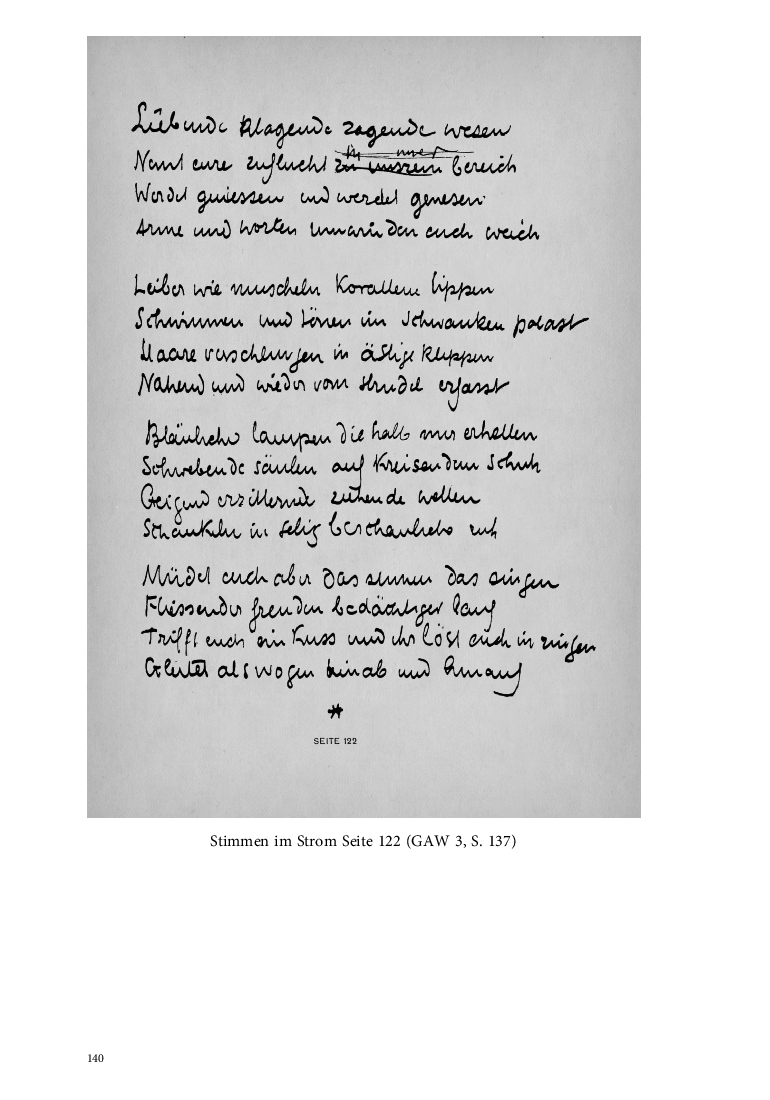 Liebende klagende zagende wesen
Nemt eure zuflucht zu unsrem bereich
Werdet geniessen und werdet genesen
Arme und worten umwinden euch weich
Leiber wie muscheln korallene lippen
Schwimmen und tönen im schwanken palast
Haare verschlungen in ästige klippen
Nahend und wieder vom strudel erfasst
Bläuliche lampen die halb nur erhellen
Schwebende säulen auf kreisendem schuh
Geigend erzitternde ziehende wellen
Schaukeln in selig beschauliche ruh
Müdet euch aber das sinnen das singen
Fliessender freuden bedächtiger lauf
Trifft euch ein kuss und ihr löst euch in ringen
Gleitet als wogen hinab und hinauf
*
SEITE 122
Stimmen im Strom Seite 122 (GAW 3, S. 137)
140